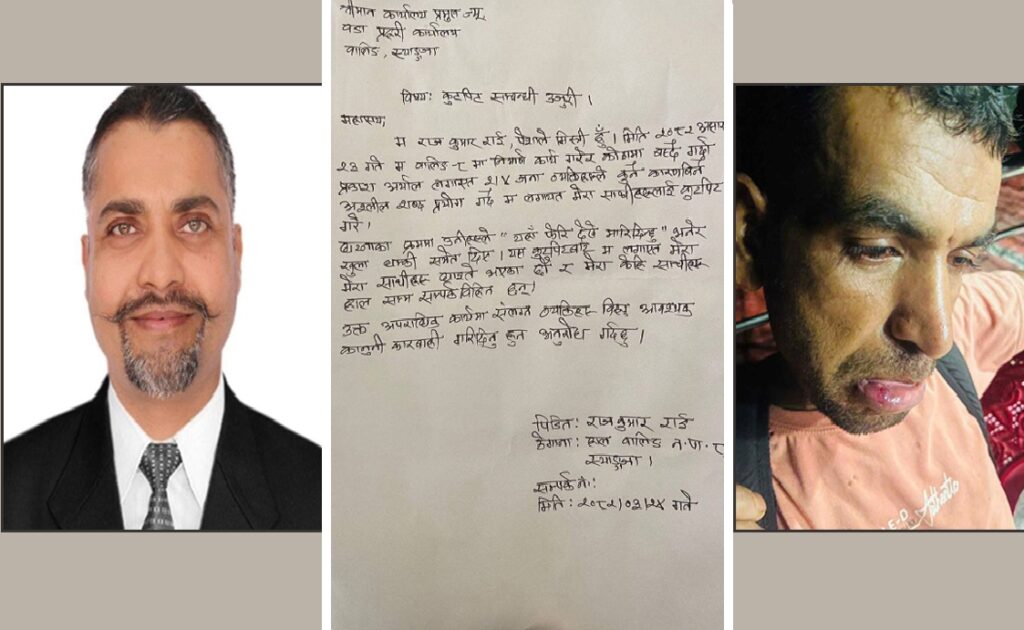 श्रीमान कार्यालय प्रमुख ज्यू
वडा प्रहरी कार्यालय
वालिङ, स्याङ्जा
विषय: कुटपिट सम्बन्धी उजुरी ।
महाशय,
म राज कुमार राई, पेशाले मिस्त्री हुँ । मिति २०८२ असार
२३ गते म वालिङ-८ मा निर्माण कार्य गरेर कोठामा बस्दै गर्दा
प्रकाश अर्याल लगायत २।४ जना व्यक्तिहरुले कुनै कारणबिना
अश्लील शब्द प्रयोग गर्दै म लगायत मेरा साथीहरुलाई कुटपिट
गरे ।
घटनाका क्रममा उनीहरुले "यहाँ फेरि देखे मारिदिन्छु" भनेर
खुला धम्की समेत दिए । यस कुटपिटबाट म लगायत मेरा
मेरा साथीहरु घाइते भएका छौं र मेरा केहि साथीहरु
हाल सम्म सम्पर्कविहिन छन् ।
उक्त अपराधिक कार्यमा संलग्न व्यक्तिहरु विरुद्ध आवश्यक
कानुनी कारवाही गरिदिनु हुन अनुरोध गर्दछु ।
पिडित: राज कुमार राई
ठेगाना: हाल वालिङ न.पा. ८
स्याङ्जा ।
सम्पर्क नं:
मिति: २०८२।०३।२४ गते